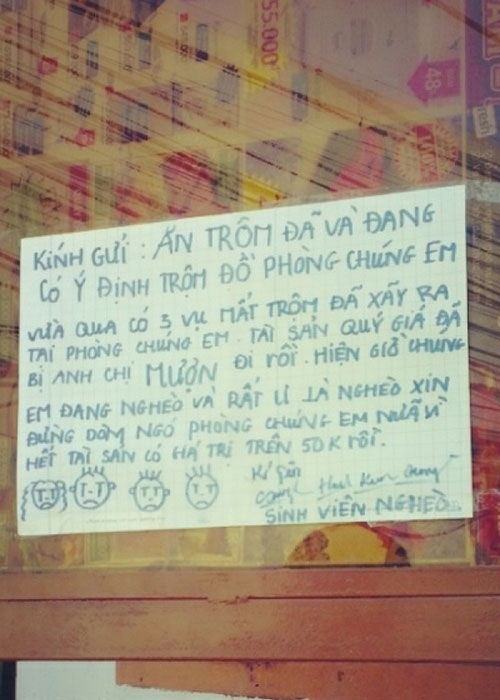 55.000
48
KÍNH GỬI : ĂN TRỘM ĐÃ VÀ ĐANG
CÓ Ý ĐỊNH TRỘM ĐỒ PHÒNG CHÚNG EM
VỪA QUA CÓ 3 VỤ MẤT TRỘM ĐÃ XẢY RA
TẠI PHÒNG CHÚNG EM. TÀI SẢN QUÝ GIÁ ĐÃ
BỊ ANH CHỊ MƯỢN ĐI RỒI. HIỆN GIỜ CHÚNG
EM ĐANG NGHÈO VÀ RẤT LÀ NGHÈO XIN
ĐỪNG DÒM NGÓ PHÒNG CHÚNG EM NỮA VÌ
HẾT TÀI SẢN CÓ GIÁ TRỊ TRÊN 50K RỒI.
Kí tên
SINH VIÊN NGHÈO